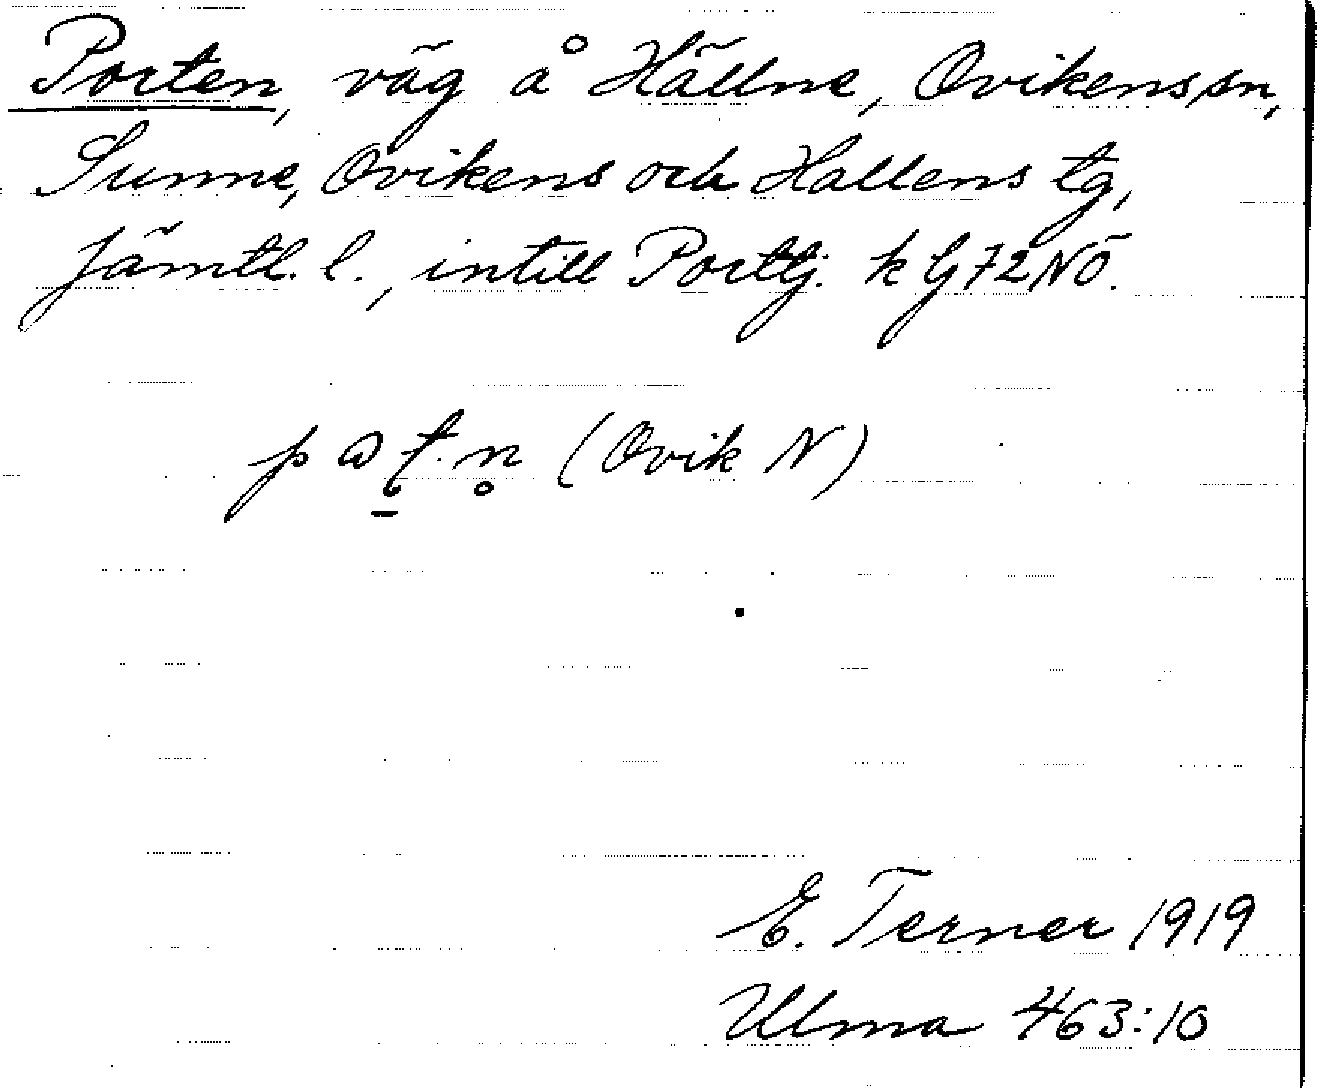 Porten, väg å Hällne, Ovikens sn,
Sunne, Ovikens och Hallens tg,
Jämtl. l., intill Porttj. k G 72 NÖ.
(Ovik N)
E. Terner 1919
Ulma 463:10